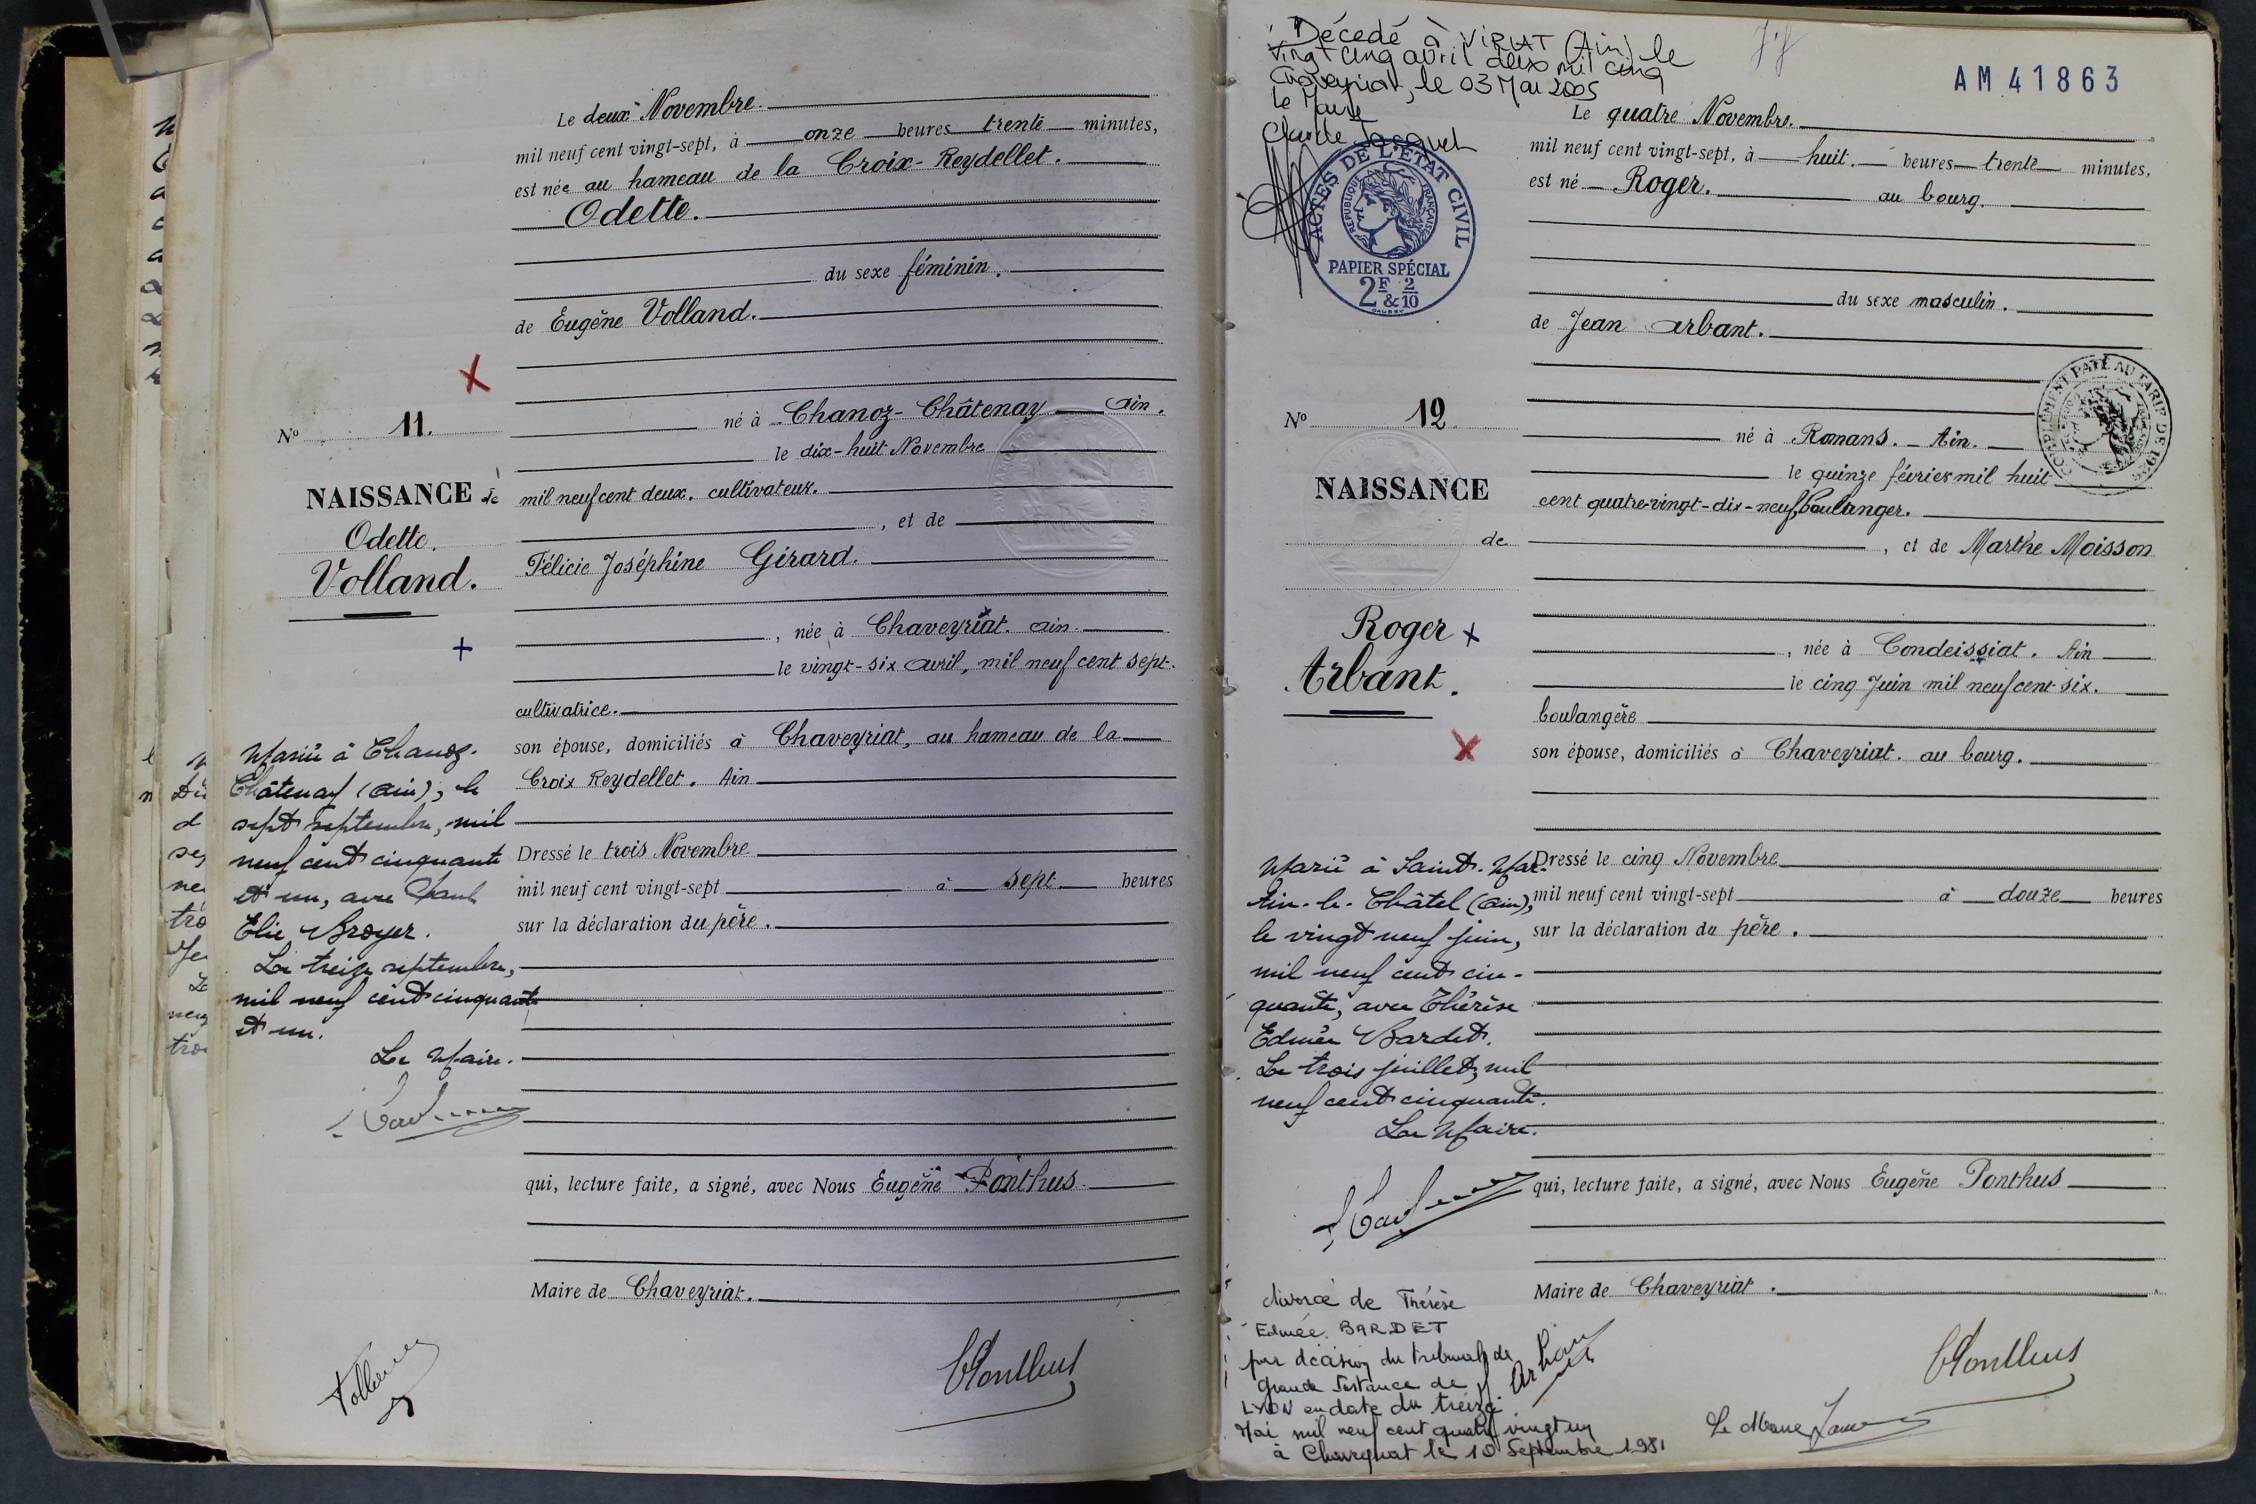 Le deux Novembre.
mil neuf cent vingt-sept, à onze heures trente minutes,
est née au hameau de la Croix-Reydellet.
Odette.
du sexe féminin.
de Eugène Volland.
né à Chanoz-Châtenay Ain.
le dix-huit Novembre
mil neuf cent deux. cultivateur.
, et de
Félicie Joséphine Girard.
, née à Chaveyriat. Ain.
le vingt-six avril, mil neuf cent sept.
cultivatrice.
son épouse, domiciliés à Chaveyriat, au hameau de la
Croix Reydellet. Ain
Dressé le trois Novembre
mil neuf cent vingt-sept à sept heures
sur la déclaration du père.
qui, lecture faite, a signé, avec Nous Eugène Ponthus
Maire de Chaveyriat.
Nº 11.
NAISSANCE de
Odette.
Volland.
Marié à Chanoz-
Châtenay (Ain), le
sept septembre, mil
neuf cent cinquante
et un, avec Paul
Elie Broyer.
Le treize septembre,
mil neuf cent cinquante
et un.
Le Maire.
Ponthus
Décédé à VIRIAT (Ain) le
vingt cinq avril deux mil cinq
Chaveyriat, le 03 Mai 2005
Le Maire
AM 41863
ACTES DE L'ÉTAT CIVIL
RÉPUBLIQUE FRANÇAISE
PAPIER SPÉCIAL
2F & 2/10
Le quatre Novembre.
mil neuf cent vingt-sept, à huit. heures trente minutes,
est né Roger. au bourg.
du sexe masculin.
de Jean Arbant.
né à Romans. Ain.
le quinze février mil huit
cent quatre-vingt-dix-neuf, boulanger.
, et de Marthe Moisson
, née à Condeissiat. Ain
le cinq Juin mil neuf cent six.
boulangère
son épouse, domiciliés à Chaveyriat. au bourg.
Dressé le cinq Novembre
mil neuf cent vingt-sept à douze heures
sur la déclaration du père.
qui, lecture faite, a signé, avec Nous Eugène Ponthus
Maire de Chaveyriat.
Nº 12
NAISSANCE
de
Roger
Arbant.
Marié à Saint-Mar-
tin-le-Châtel (Ain),
le vingt neuf juin,
mil neuf cent cin-
quante, avec Thérèse
Edmée Bardet.
Le trois juillet, mil
neuf cent cinquante.
Le Maire.
divorcé de Thérèse
Edmée BARDET
par décision du tribunal de
Grande Instance de
LYON en date du treize
Mai mil neuf cent quatre vingt un
à Chaveyriat le 10 Septembre 1981
Le Maire
Ponthus